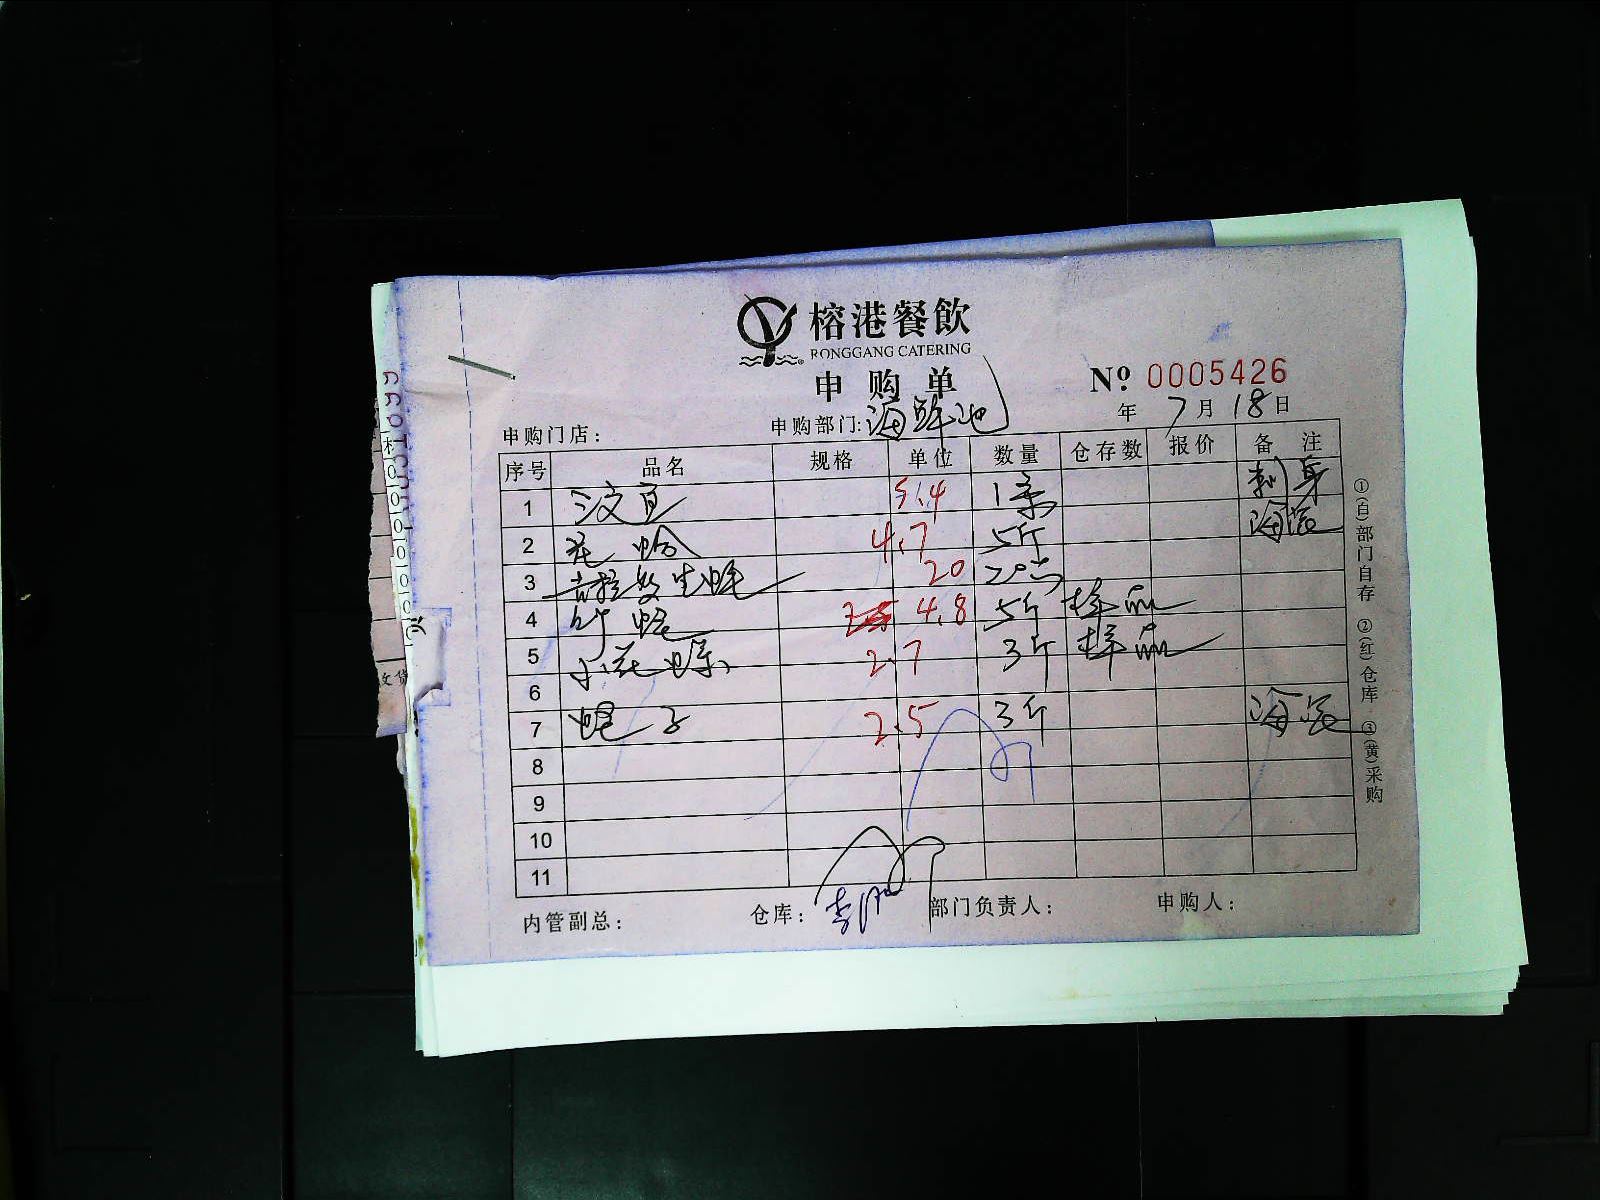 榕港餐飲
RONGGANG CATERING
申购单
№ 0005426
年 7月18日
申购门店： 申购部门：海鲜池
序号 品名 规格 单位 数量 仓存数 报价 备注
1 三文鱼 5.4 1条 刺身
2 花蛤 4.7 5斤 海蒸
3 吉拉多生蚝 20 20只
4 竹蛏 4.8 5斤 样品
5 小花螺 2.7 3斤 样品
6
7 蛏子 2.5 3斤 海蒸
8
9
10
11
内管副总： 仓库： 部门负责人： 申购人：
①(白)部门自存 ②(红)仓库 ③(黄)采购